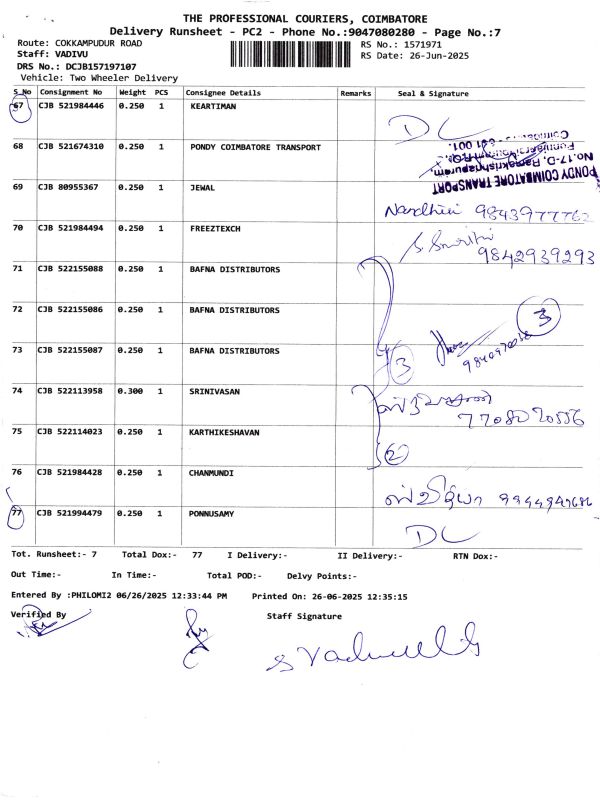 THE PROFESSIONAL COURIERS, COIMBATORE
Delivery Runsheet - PC2 - Phone No.:9047080280 - Page No.:7
Route: COKKAMPUDUR ROAD RS No.: 1571971
Staff: VADIVU RS Date: 26-Jun-2025
DRS No.: DCJB157197107
Vehicle: Two Wheeler Delivery
S_No Consignment No Weight PCS Consignee Details Remarks Seal & Signature
67 CJB 521984446 0.250 1 KEARTIMAN DL
68 CJB 521674310 0.250 1 PONDY COIMBATORE TRANSPORT
PONDY COIMBATORE TRANSPORT
No.17-D, Ramakrishnapuram,
69 CJB 80955367 0.250 1 JEWAL
70 CJB 521984494 0.250 1 FREEZTEXCH
9842939293
71 CJB 522155088 0.250 1 BAFNA DISTRIBUTORS
72 CJB 522155086 0.250 1 BAFNA DISTRIBUTORS 3
73 CJB 522155087 0.250 1 BAFNA DISTRIBUTORS 3
74 CJB 522113958 0.300 1 SRINIVASAN
75 CJB 522114023 0.250 1 KARTHIKESHAVAN 2
76 CJB 521984428 0.250 1 CHANMUNDI
77 CJB 521994479 0.250 1 PONNUSAMY DL
Tot. Runsheet:- 7 Total Dox:- 77 I Delivery:- II Delivery:- RTN Dox:-
Out Time:- In Time:- Total POD:- Delvy Points:-
Entered By :PHILOMI2 06/26/2025 12:33:44 PM Printed On: 26-06-2025 12:35:15
Verified By Staff Signature